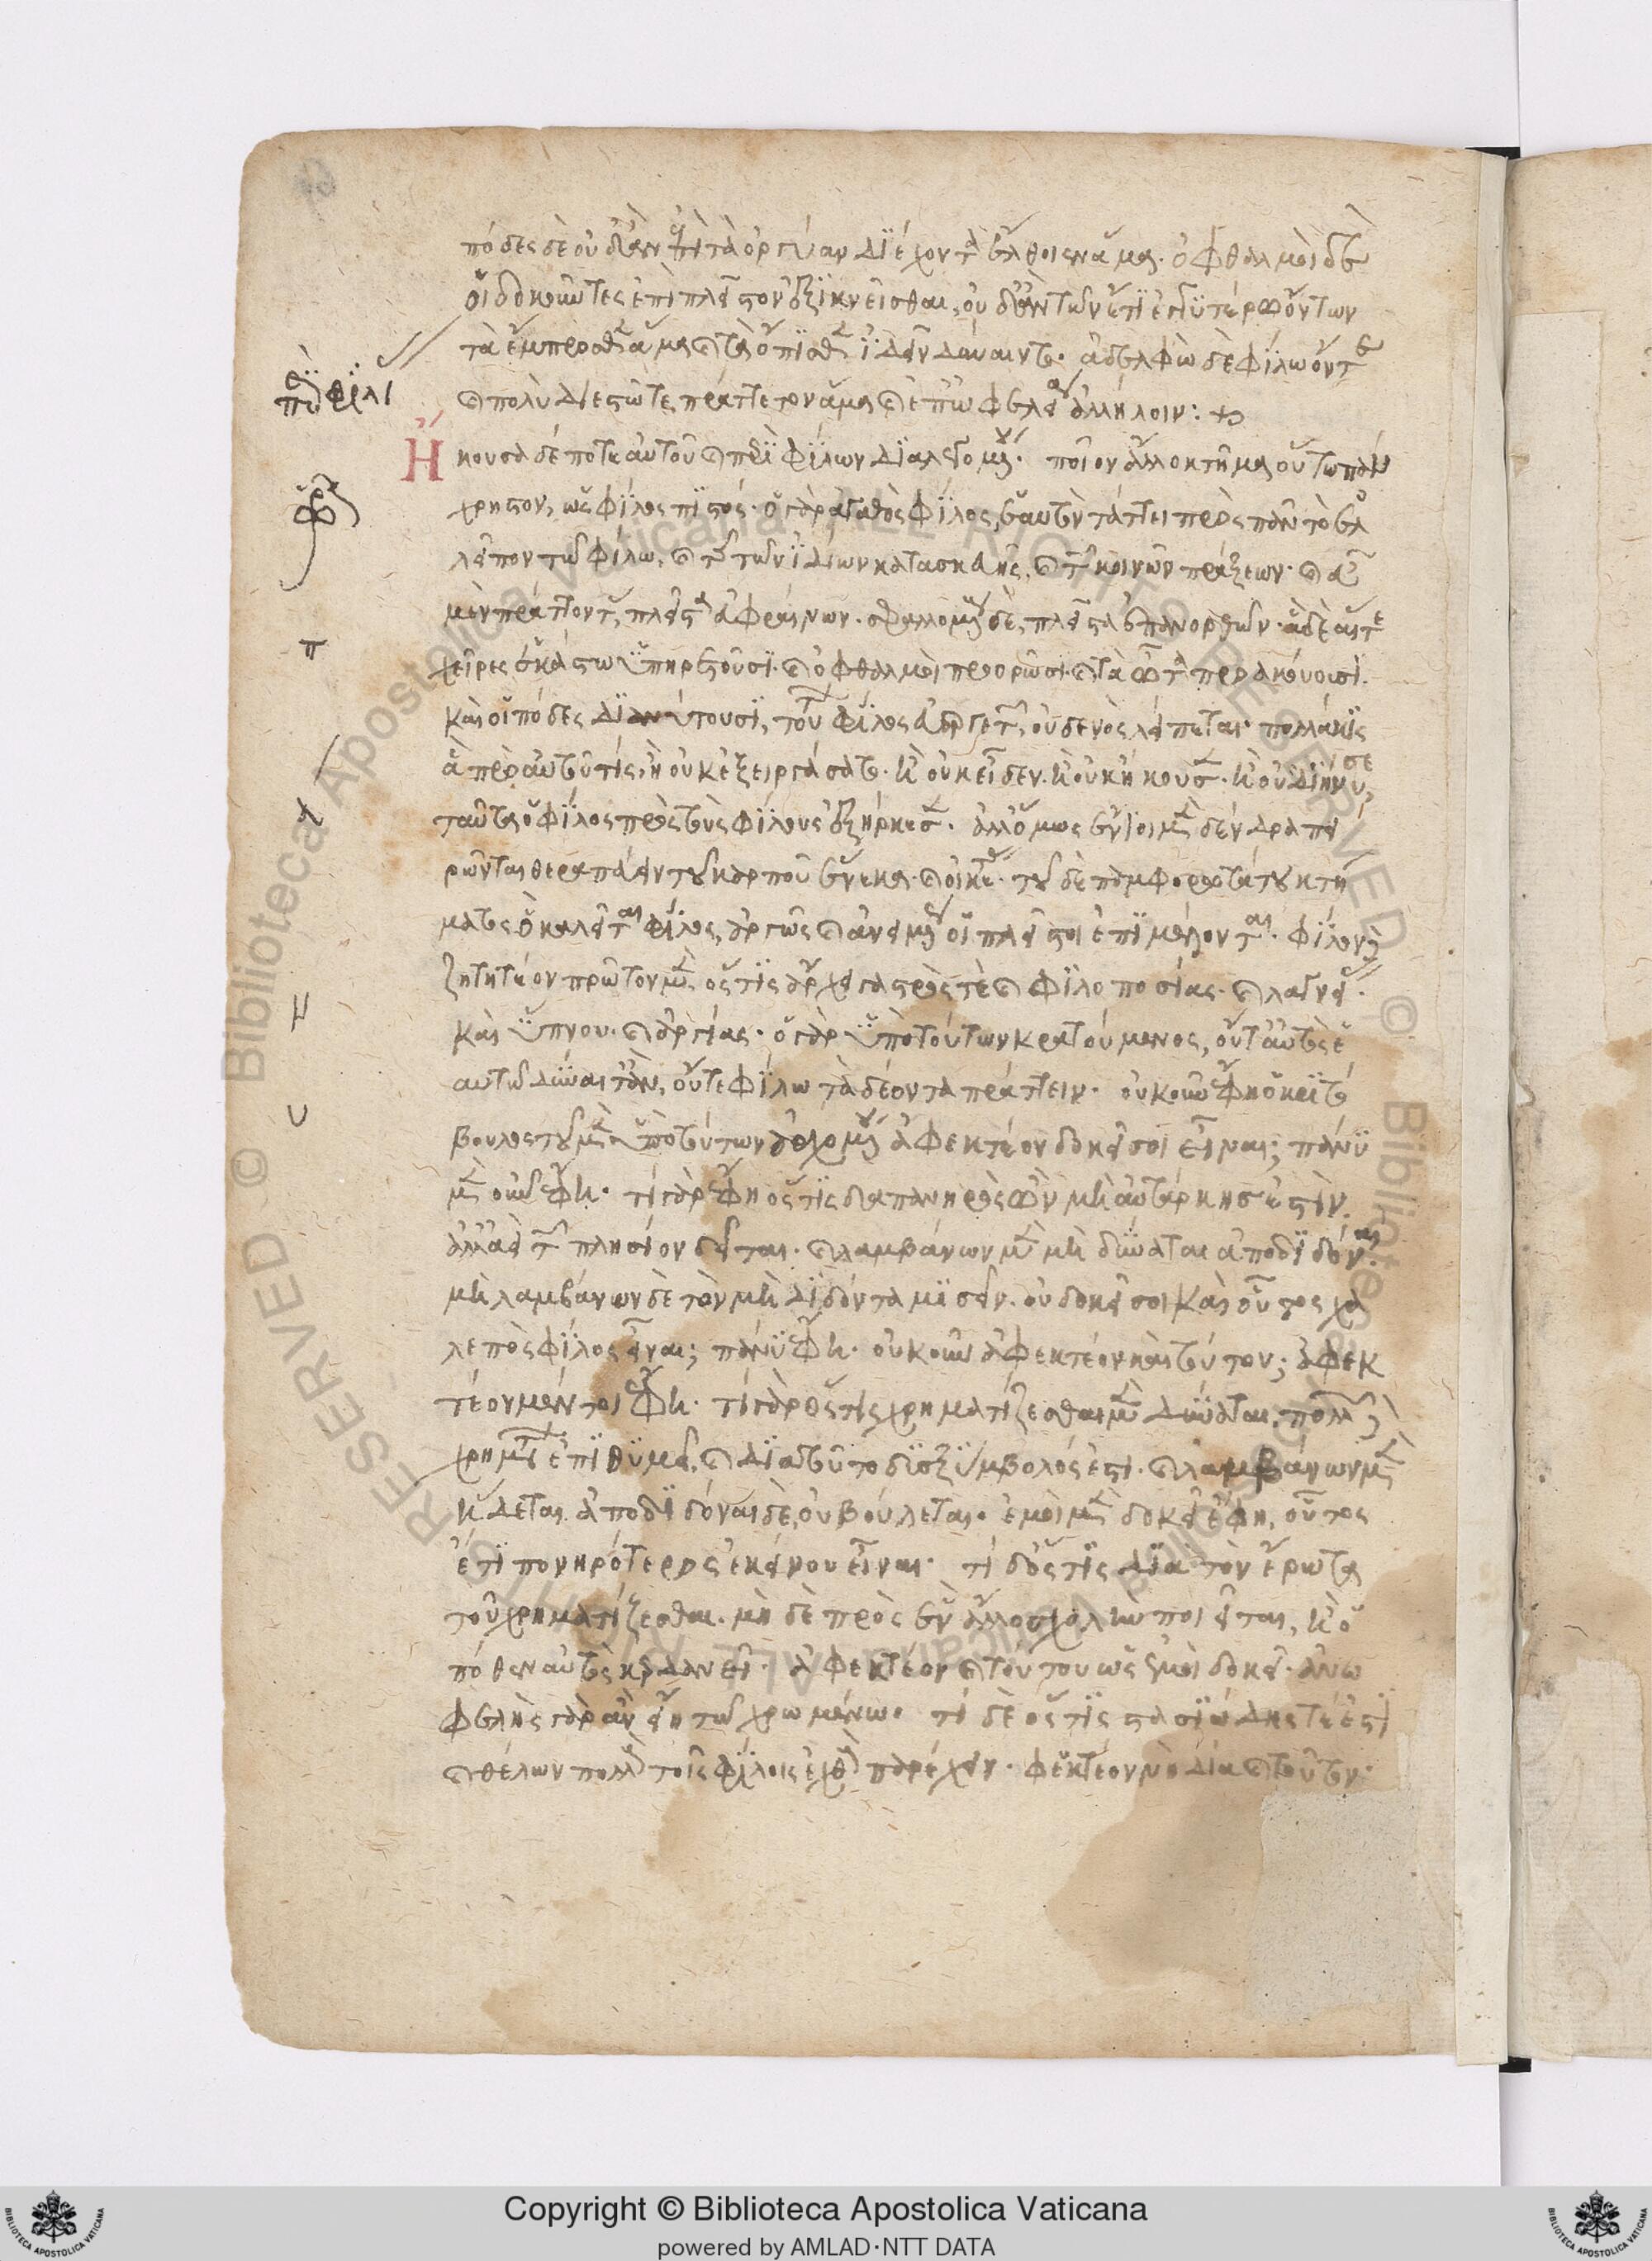 πόδες δὲ οὐδ' ἂν ἐπὶ τὰ ὀργυιὰν διέχοντα ἔλθοιεν ἅμα. ὀφθαλμοὶ δὲ
οἱ δοκοῦντες ἐπὶ πλεῖστον ἐξικνεῖσθαι, οὐδ' ἂν τῶν ἔτι ἐγγυτέρω ὄντων
τὰ ἔμπροσθεν ἅμα καὶ τὰ ὄπισθεν ἰδεῖν δύναιντο. ἀδελφὼ δὲ φίλω ὄντε
καὶ πολὺ διεστῶτε πράττετον ἅμα καὶ ἐπ' ὠφελείᾳ ἀλλήλοιν:
περὶ φίλων
Ἤκουσα δέ ποτε αὐτοῦ καὶ περὶ φίλων διαλεγομένου. ποῖον ἄλλο κτῆμα οὕτω πάγ
χρηστον, ὡς φίλος πιστός. ὁ γὰρ ἀγαθὸς φίλος, ἑαυτὸν τάττει πρὸς πᾶν τὸ ἐλ
λεῖπον τῷ φίλῳ, καὶ τῆς τῶν ἰδίων κατασκευῆς, καὶ τῶν κοινῶν πράξεων. καὶ εὖ
μὲν πράττοντας, πλεῖστα εὐφραίνων. σφαλλομένους δὲ, πλεῖστα ἐπανορθῶν. ἃ δὲ αἵ τε
χεῖρες ἑκάστῳ ὑπηρετοῦσι. καὶ ὀφθαλμοὶ προορῶσι. καὶ τὰ ὦτα προακούουσι.
καὶ οἱ πόδες διανύτουσι, τούτων φίλος εὐεργετῶν, οὐδενὸς λείπεται. πολλάκις
ἃ πρὸ αὑτοῦ τις, ἢ οὐκ ἐξειργάσατο. ἢ οὐκ εἶδεν. ἢ οὐκ ἤκουσεν. ἢ οὐ διήνυσε,
ταῦτα ὁ φίλος πρὸς τοὺς φίλους ἐξήρκεσεν. ἀλλ' ὅμως ἔνιοι μὲν δένδρα πει
ρῶνται θεραπεύειν τοῦ καρποῦ ἕνεκα. τοῦ δὲ παμφορωτάτου κτή
ματος ὃ καλεῖται φίλος, ἀργῶς καὶ ἀνειμένως οἱ πλεῖστοι ἐπιμέλονται. φίλον
ζητητέον πρῶτον μὲν, ὅστις ἄρχει γαστρός τε καὶ φιλοποσίας. καὶ λαγνείας.
καὶ ὕπνου. καὶ ἀργίας. ὁ γὰρ ὑπὸ τούτων κρατούμενος, οὔτ' αὐτὸς ἑ
αυτῷ δύναιτ' ἂν, οὔτε φίλῳ τὰ δέοντα πράττειν. οὐκοῦν ἔφη ὁ κριτό
βουλος τοῦ μὲν ὑπὸ τούτων ἀρχομένου ἀφεκτέον δοκεῖ σοι εἶναι; πάνυ
μὲν οὖν ἔφη. τί γὰρ ἔφη ὅστις δαπανηρὸς ὢν μὴ αὐτάρκης ἐστίν.
ἀλλ' ἀεὶ τῶν πλησίον δεῖται. καὶ λαμβάνων μὲν μὴ δύναται ἀποδιδόναι.
μὴ λαμβάνων δὲ τὸν μὴ διδόντα μισεῖν. οὐ δοκεῖ σοι καὶ οὗτος χα
λεπὸς φίλος εἶναι; πάνυ ἔφη. οὐκοῦν ἀφεκτέον καὶ τούτου; ἀφεκ
τέον μέντοι ἔφη. τί γὰρ ὅστις χρηματίζεσθαι μὲν δύναται, πολλῶν δὲ
χρημάτων ἐπιθυμεῖ, καὶ διὰ τοῦτο δυσξύμβολός ἐστι. καὶ λαμβάνων μὲν
ἥδεται ἀποδιδόναι δὲ, οὐ βούλεται. ἐμοὶ μὲν δοκεῖ ἔφη, οὗτος
ἔτι πονηρότερος ἐκείνου εἶναι. τί δ' ὅστις διὰ τὸν ἔρωτα
τοῦ χρηματίζεσθαι. μηδὲ πρὸς ἓν ἄλλο σχολὴν ποιεῖται, ἢ ὁ
πόθεν αὐτὸς κερδανεῖ. ἀφεκτέον καὶ τούτου ὡς ἐμοὶ δοκεῖ. ἀνω
φελὴς γὰρ ἂν εἴη τῷ χρωμένῳ. τί δὲ ὅστις στασιώδης τέ ἐστι
καὶ θέλων πολλοὺς τοῖς φίλοις ἐχθροὺς παρέχειν. φευκτέον νὴ δία καὶ τοῦτον.